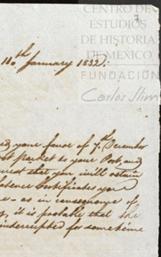 7
CENTRO
DE
ESTUDIOS
DE HISTORIA
DE MEXICO
FUNDACIÓN
Carlos Slim
10th January 1832
your favor of 7th December
packet to your Port, and
that you will retain
Certificates you
as in consequence of
it is probable that the
interrupted for sometime